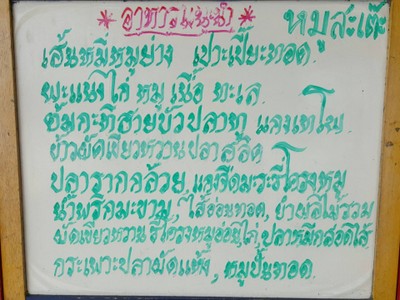 * อาหารแนะนำ * หมูสะเต๊ะ
เส้นหมี่หมูยาง เปาะเปี๊ยะทอด.
พะแนงไก่ หมู เนื้อ ทะเล.
ต้มกะทิสายบัวปลาทู แกงเทโพ.
ข้าวผัดเขียวหวานปลาสลิด
ปลารากกล้วย, แกงจืดมะระซี่โครงหมู
น้ำพริกมะขาม, ไส้อ่อนทอด, ยำผลไม้รวม
ผัดเขียวหวานซี่โครงหมูอ่อน ไก่, ปลาหมึกสอดไส้
กระเพาะปลาผัดแห้ง, หมูปั้นทอด.